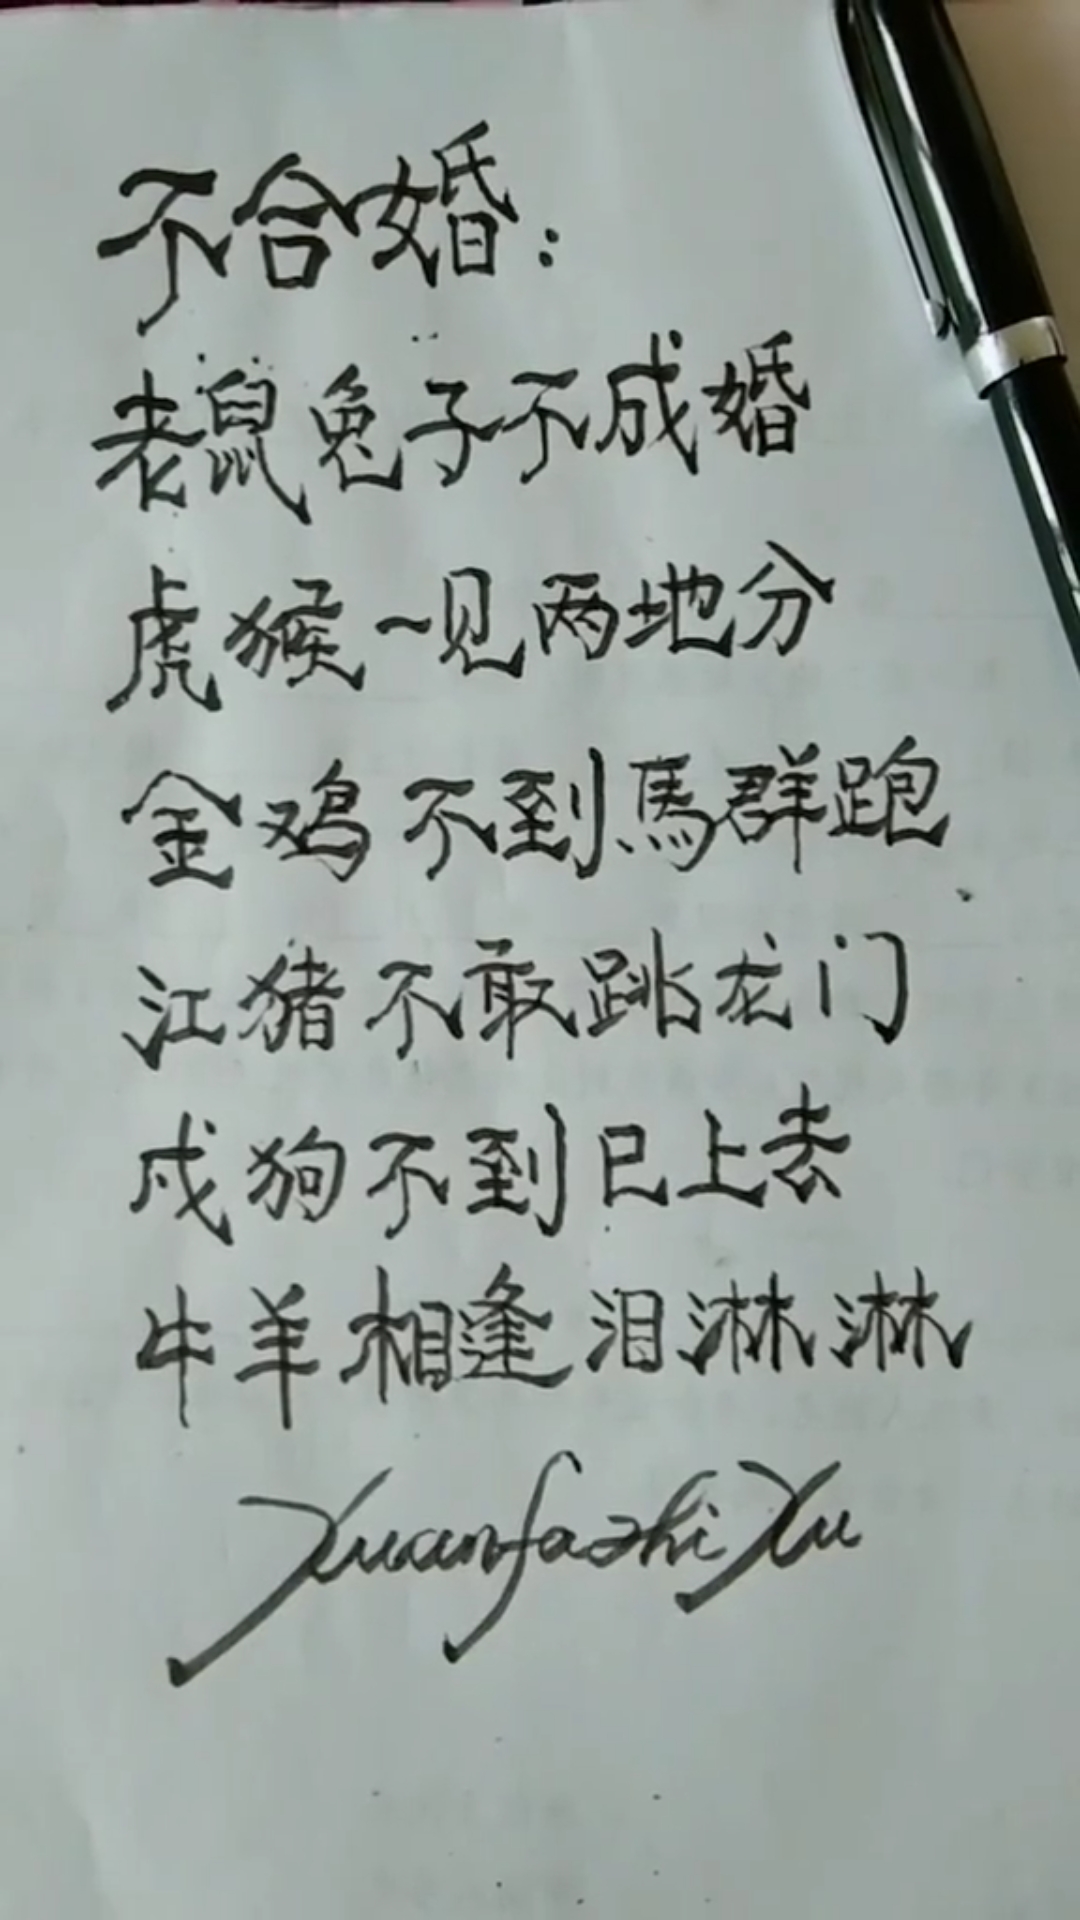 不合婚：
老鼠兔子不成婚
虎猴一见两地分
金鸡不到馬群跑
江猪不敢跳龙门
戌狗不到巳上去
牛羊相逢泪淋淋
Xuanfazhi Xu